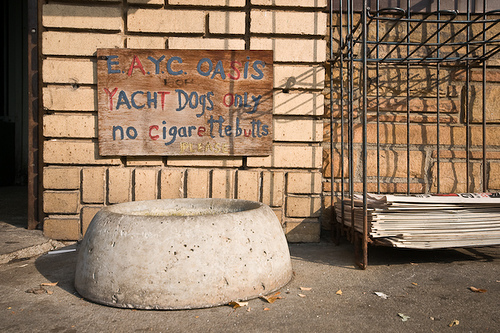 E.A.Y.C. OASIS
FOR
YACHT DOgs only
no cigarettebutts
PLEASE